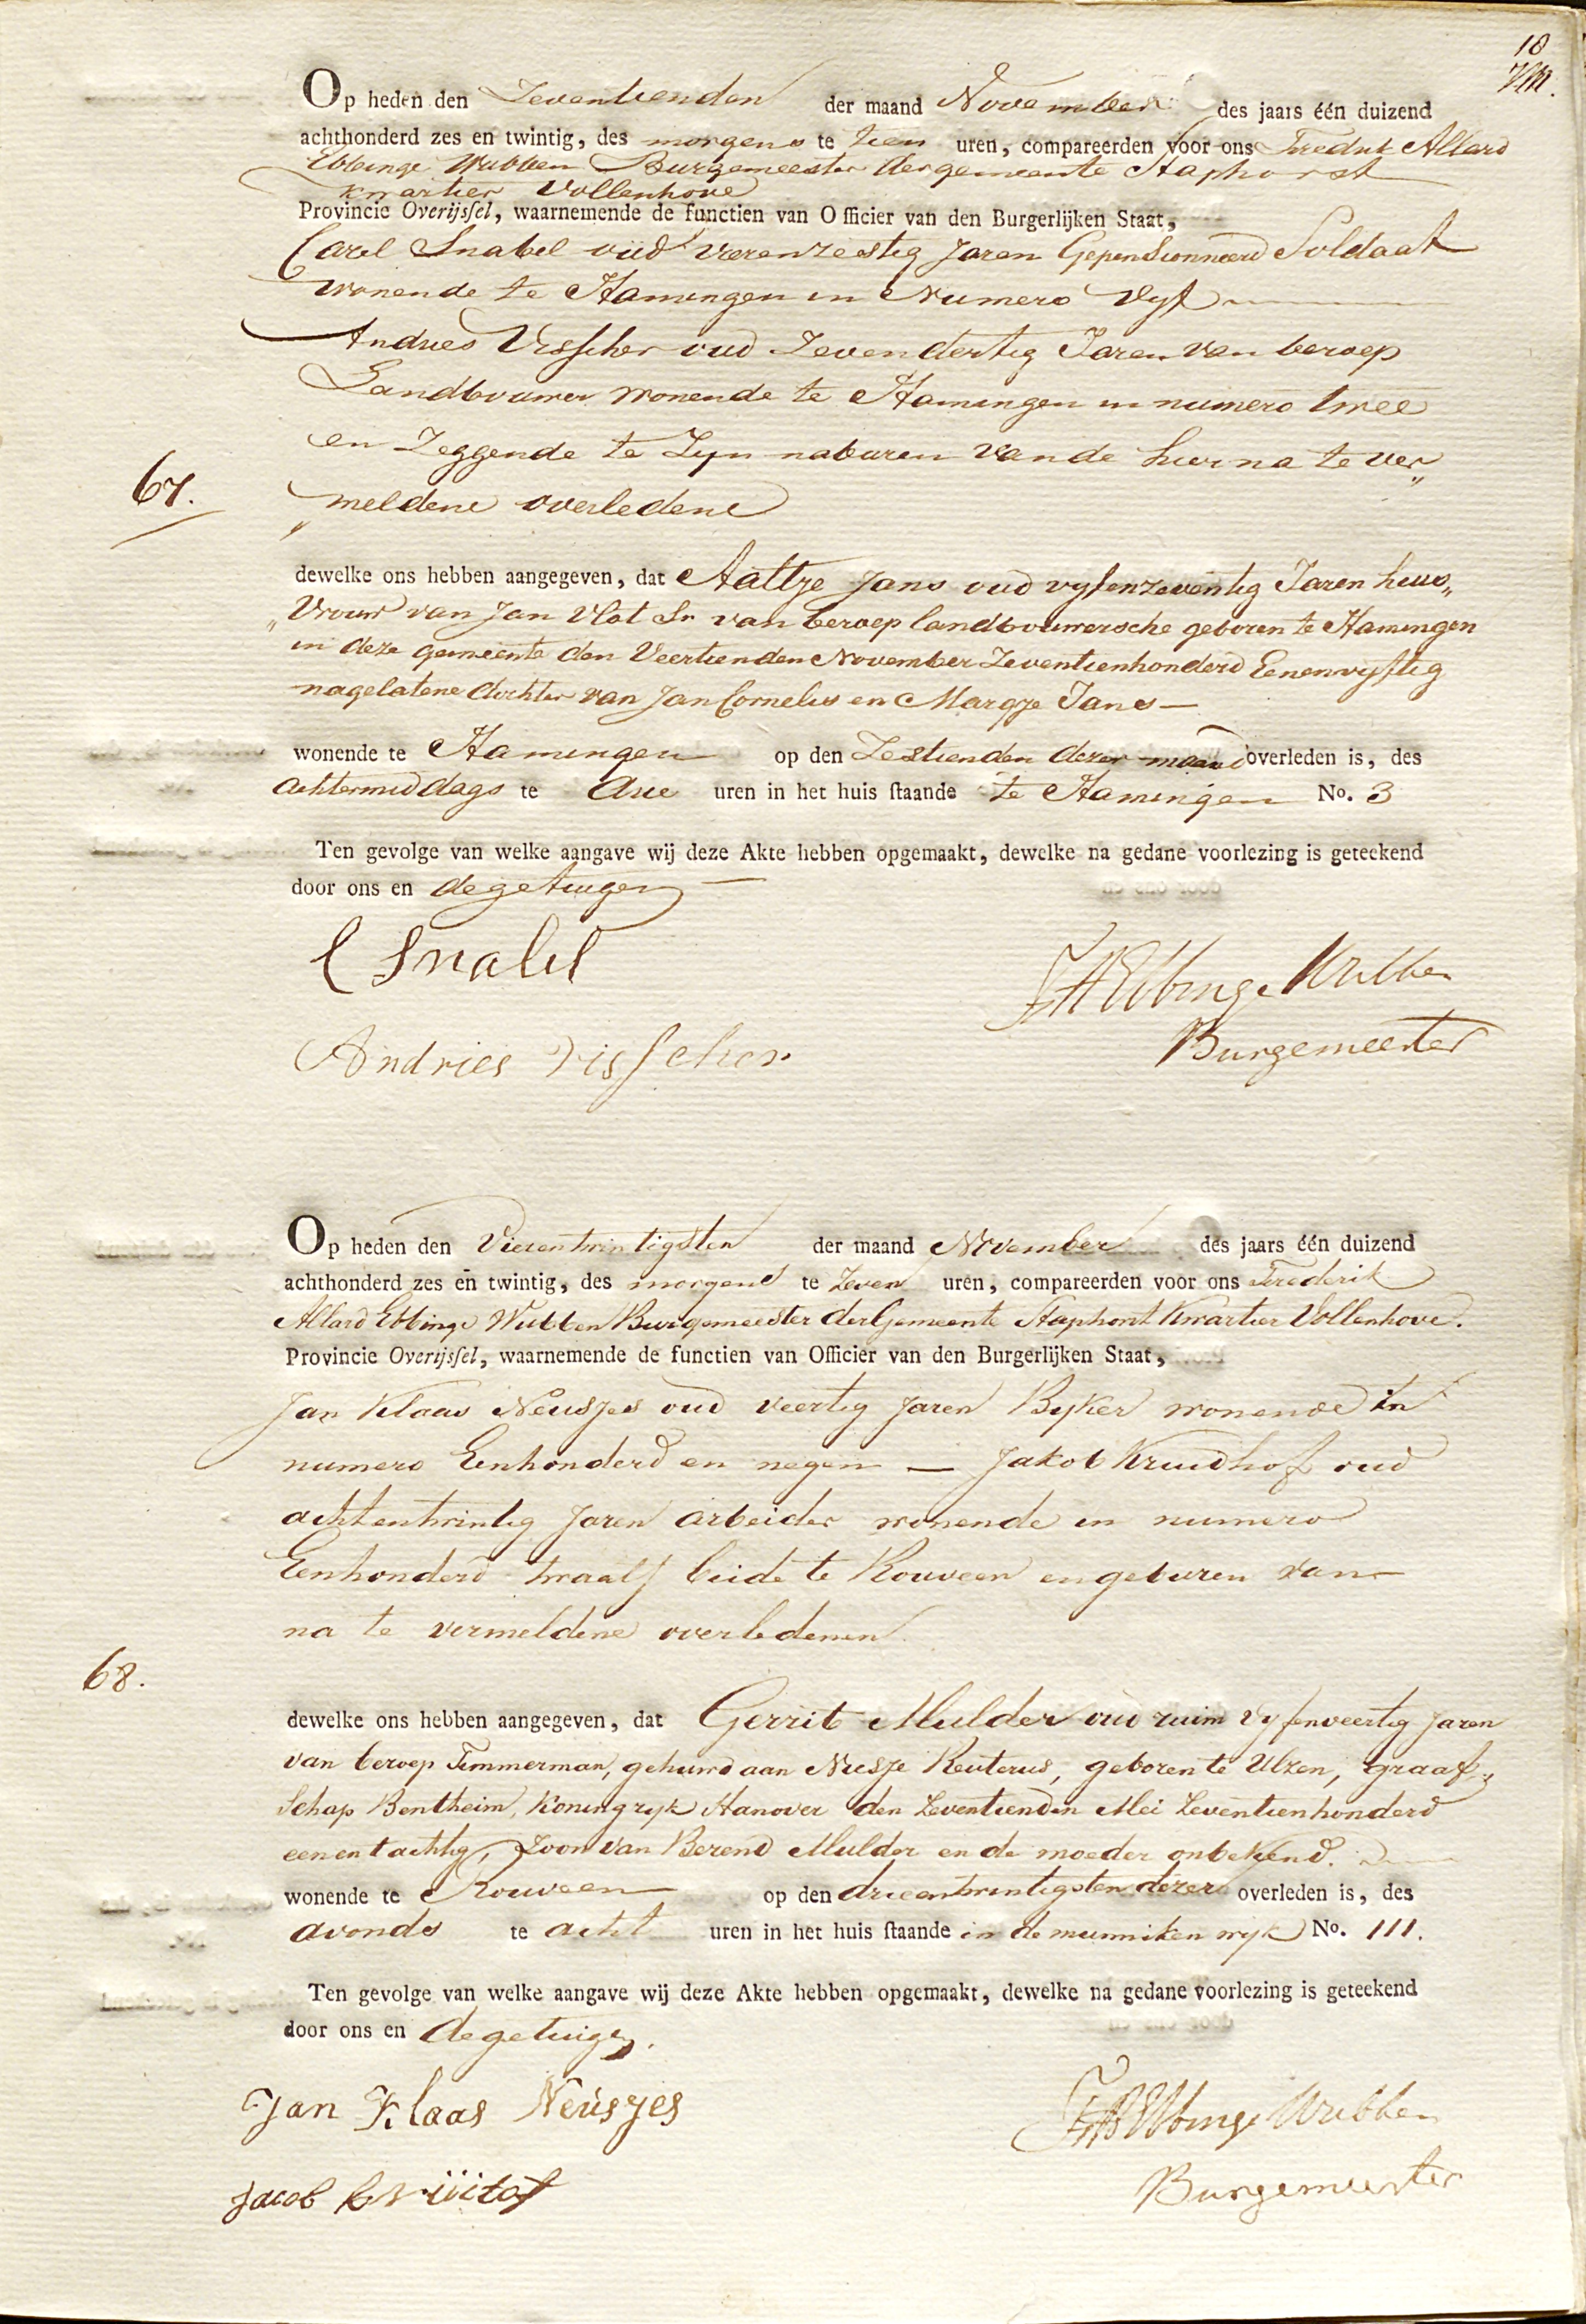 18
Op heden den Zeventienden der maand November des jaars één duizend
achthonderd zes en twintig, des morgens te tien uren, compareerden voor ons Fredrik Allard
Ebbinge Wubben Burgemeester der gemeente Staphorst
kwartier Vollenhove
Provincie Overijssel, waarnemende de functien van Officier van den Burgerlijken Staat,
Carel Snabel oud vierenzestig Jaren Gepensionneerd Soldaat
wonende te Hamingen in Numero Vyf
Andries Visscher oud Zevendertig Jaren van beroep
Landbouwer wonende te Hamingen in numero twee
en Zeggende te Zyn naburen van de hierna te ver„
67.
„meldene overledene
dewelke ons hebben aangegeven, dat Aaltje Jans oud vyfenzeventig Jaren huis„
„Vrouw van Jan Vlot Sr van beroep landbouwersche geboren te Hamingen
in deze gemeente den Veertienden November Zeventienhonderd Eenenvyftig
nagelatene dochter van Jan Cornelis en Margje Jans —
wonende te Hamingen op den Zestienden dezer maand overleden is, des
achtermiddags te drie uren in het huis staande te Hamingen No. 3
Ten gevolge van welke aangave wij deze Akte hebben opgemaakt, dewelke na gedane voorlezing is geteekend
door ons en de getuigen —
C Snabel
FAEbbinge Wubben
Andries Visscher
Burgemeester
Op heden den Vierentwintigsten der maand November des jaars één duizend
achthonderd zes en twintig, des morgens te Zeven uren, compareerden voor ons Frederik
Allard Ebbinge Wubben Burgemeester der Gemeente Staphorst Kwartier Vollenhove.
Provincie Overijssel, waarnemende de functien van Officier van den Burgerlijken Staat,
Jan Klaas Neusjes oud veertig Jaren Byker wonende in
numero Eenhonderd en negen — Jakob Kruidhof oud
achtentwintig Jaren arbeider wonende in numero
Eenhonderd twaalf beide te Rouveen en geburen van
na te vermeldene overledenen
68.
dewelke ons hebben aangegeven, dat Gerrit Mulder oud ruim vyfenveertig Jaren
van beroep Timmerman, gehuwd aan Niesje Reuterus, geboren te Ulzen, graaf„
Schap Bentheim, Koningryk Hanover den Zeventienden Mei Zeventienhonderd
eenentachtig, Zoon van Berend Mulder en de moeder onbekend.
wonende te Rouveen op den drieentwintigsten dezer overleden is, des
avonds te acht uren in het huis staande in de munniken wyk No. 111.
Ten gevolge van welke aangave wij deze Akte hebben opgemaakt, dewelke na gedane voorlezing is geteekend
door ons en de getuigen.
Jan Klaas Neúsjes
FAEbbinge Wubben
Jacob krüitof
Burgemeester